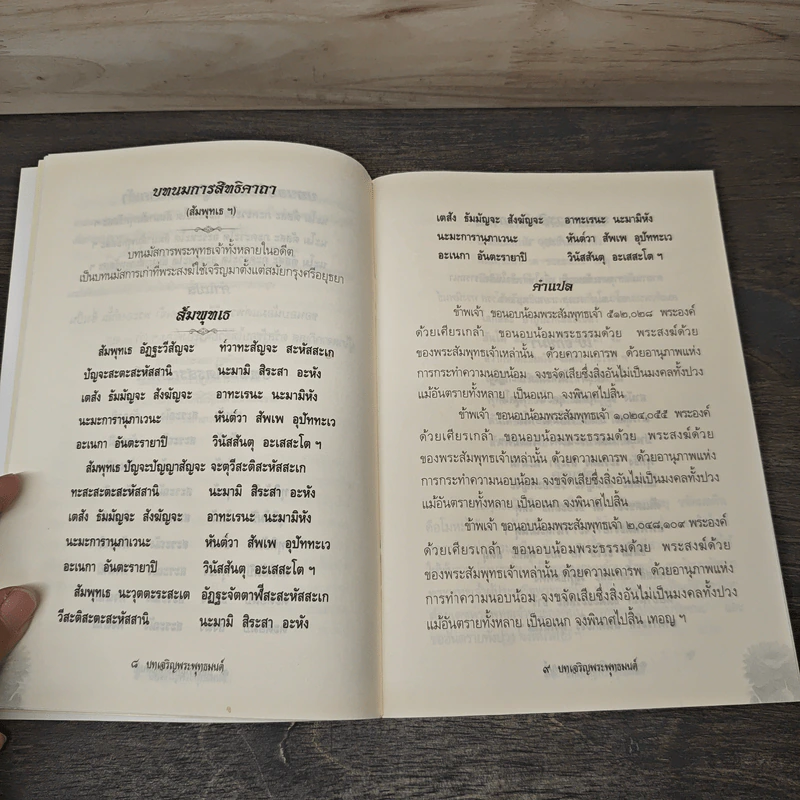 บทนมการสิทธิคาถา
(สัมพุทเธ ฯ)
บทนมัสการพระพุทธเจ้าทั้งหลายในอดีต
เป็นบทนมัสการเก่าที่พระสงฆ์ใช้เจริญมาตั้งแต่สมัยกรุงศรีอยุธยา
สัมพุทเธ
สัมพุทเธ อัฏฐะวีสัญจะ ท๎วาทะสัญจะ สะหัสสะเก
ปัญจะสะตะสะหัสสานิ นะมามิ สิระสา อะหัง
เตสัง ธัมมัญจะ สังฆัญจะ อาทะเรนะ นะมามิหัง
นะมะการานุภาเวนะ หันต๎วา สัพเพ อุปัททะเว
อะเนกา อันตะรายาปิ วินัสสันตุ อะเสสะโต ฯ
สัมพุทเธ ปัญจะปัญญาสัญจะ จะตุวีสะติสะหัสสะเก
ทะสะสะตะสะหัสสานิ นะมามิ สิระสา อะหัง
เตสัง ธัมมัญจะ สังฆัญจะ อาทะเรนะ นะมามิหัง
นะมะการานุภาเวนะ หันต๎วา สัพเพ อุปัททะเว
อะเนกา อันตะรายาปิ วินัสสันตุ อะเสสะโต ฯ
สัมพุทเธ นะวุตตะระสะเต อัฏฐะจัตตาฬีสะสะหัสสะเก
วีสะติสะตะสะหัสสานิ นะมามิ สิระสา อะหัง
๘ บทเจริญพระพุทธมนต์
เตสัง ธัมมัญจะ สังฆัญจะ อาทะเรนะ นะมามิหัง
นะมะการานุภาเวนะ หันต๎วา สัพเพ อุปัททะเว
อะเนกา อันตะรายาปิ วินัสสันตุ อะเสสะโต ฯ
คำแปล
ข้าพเจ้า ขอนอบน้อมพระสัมพุทธเจ้า ๕๑๒,๐๒๘ พระองค์
ด้วยเศียรเกล้า ขอนอบน้อมพระธรรมด้วย พระสงฆ์ด้วย
ของพระสัมพุทธเจ้าเหล่านั้น ด้วยความเคารพ ด้วยอานุภาพแห่ง
การกระทำความนอบน้อม จงขจัดเสียซึ่งสิ่งอันไม่เป็นมงคลทั้งปวง
แม้อันตรายทั้งหลาย เป็นอเนก จงพินาศไปสิ้น
ข้าพเจ้า ขอนอบน้อมพระสัมพุทธเจ้า ๑,๐๒๔,๐๕๕ พระองค์
ด้วยเศียรเกล้า ขอนอบน้อมพระธรรมด้วย พระสงฆ์ด้วย
ของพระสัมพุทธเจ้าเหล่านั้น ด้วยความเคารพ ด้วยอานุภาพแห่ง
การกระทำความนอบน้อม จงขจัดเสียซึ่งสิ่งอันไม่เป็นมงคลทั้งปวง
แม้อันตรายทั้งหลาย เป็นอเนก จงพินาศไปสิ้น
ข้าพเจ้า ขอนอบน้อมพระสัมพุทธเจ้า ๒,๐๔๘,๑๐๙ พระองค์
ด้วยเศียรเกล้า ขอนอบน้อมพระธรรมด้วย พระสงฆ์ด้วย
ของพระสัมพุทธเจ้าเหล่านั้น ด้วยความเคารพ ด้วยอานุภาพแห่ง
การทำความนอบน้อม จงขจัดเสียซึ่งสิ่งอันไม่เป็นมงคลทั้งปวง
แม้อันตรายทั้งหลาย เป็นอเนก จงพินาศไปสิ้น เทอญ ฯ
๙ บทเจริญพระพุทธมนต์